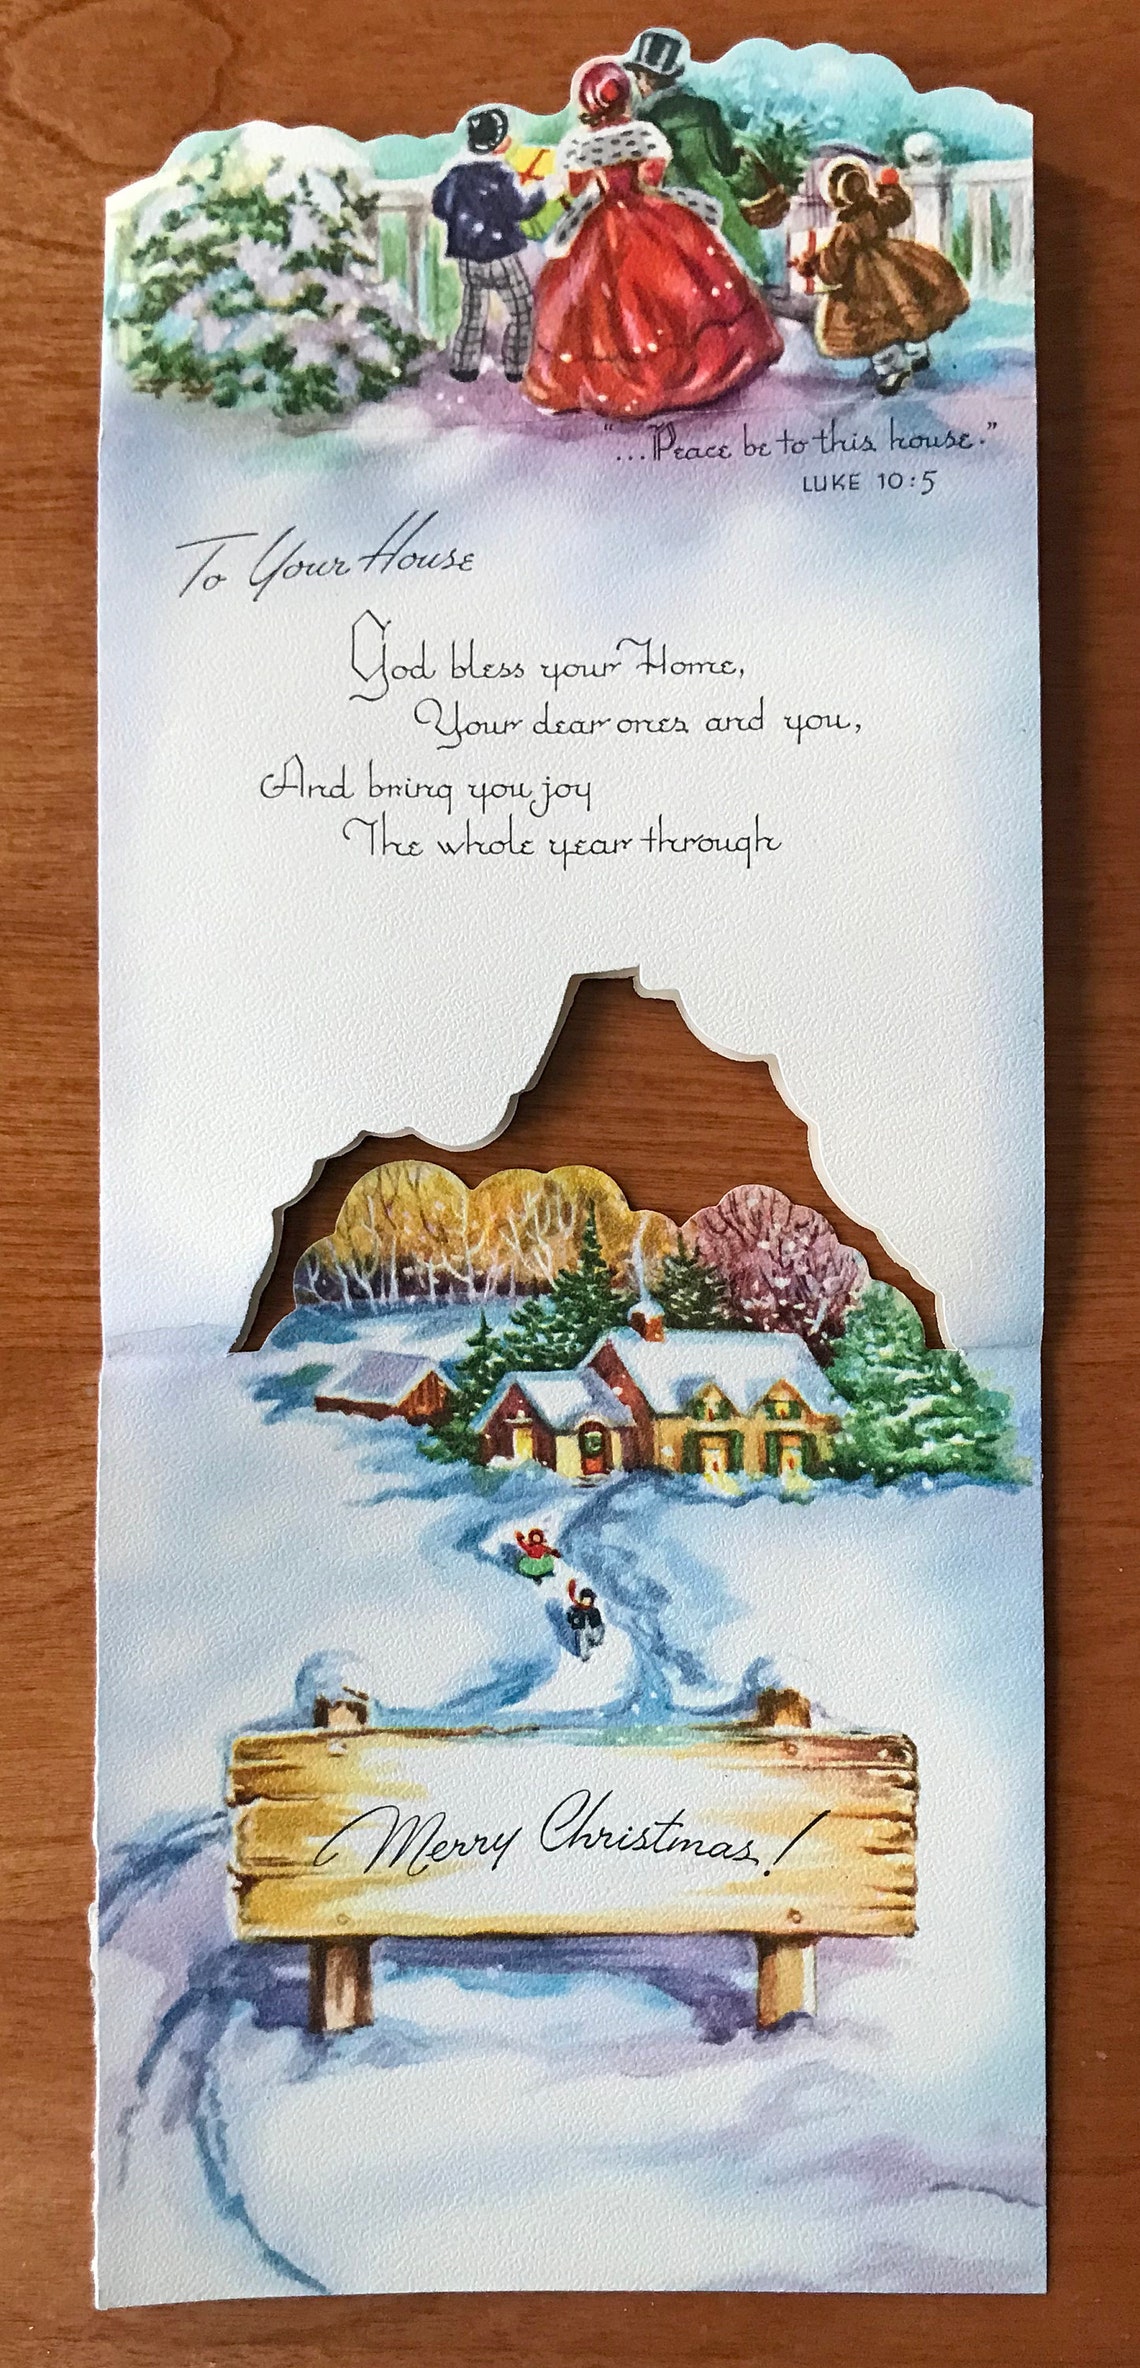 "...Peace be to this house."
LUKE 10:5
To Your House
God bless your Home,
Your dear ones and you,
And bring you joy
The whole year through
Merry Christmas!